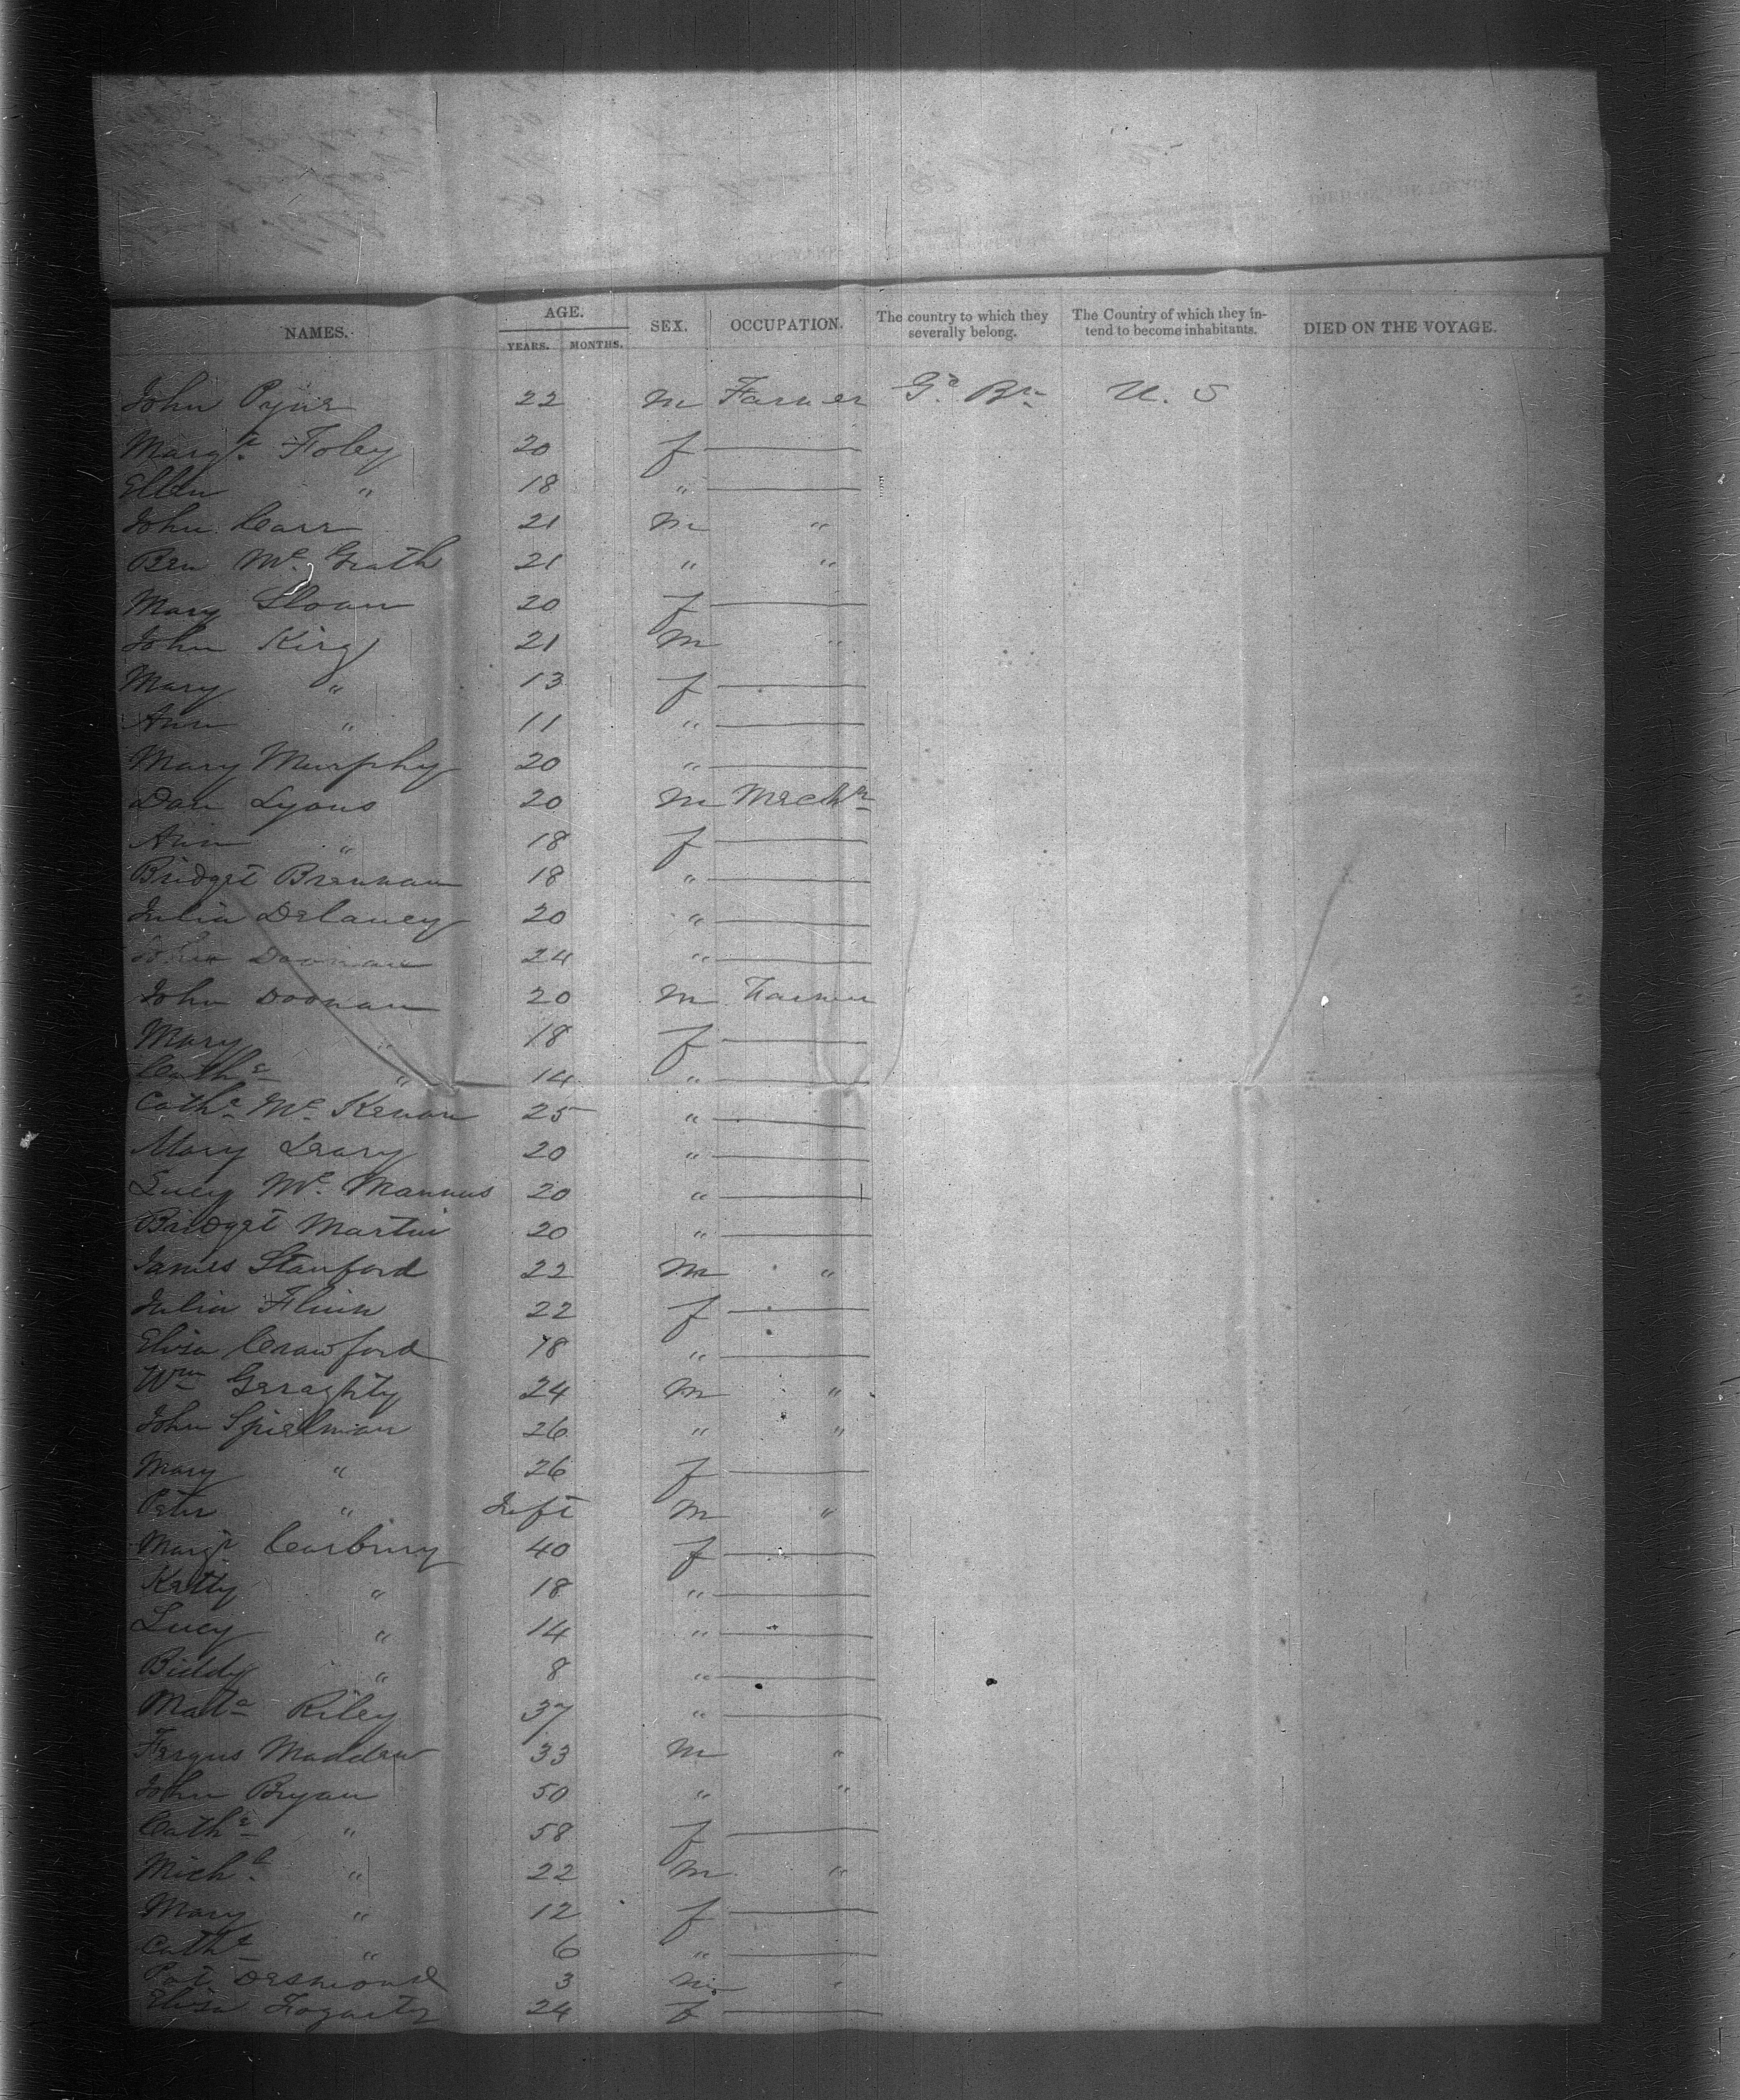 NAMES. AGE. SEX. OCCUPATION. The country to which they severally belong. The Country of which they intend to become inhabitants. DIED ON THE VOYAGE.
YEARS. MONTHS.
John 22 m Farmer Gt. Bn U. S
Margt. Foley 20 f
Ellen " 18 "
John Carr 21 m "
Ben Mc. Grath 21 " "
Mary Sloan 20 f
John King 21 m "
Mary " 13 f
Ann " 11 "
Mary Murphy 20 "
Dan Lyons 20 m Mechc
Ann " 18 f
Bridget Brennan 18 "
Julia Delaney 20 "
Doonan 24 "
John Doonan 20 m Farmer
Mary " 18 f
Cathe " 14 "
Cathe Mc. Kenan 25 "
Mary Leary 20 "
Lucy Mc. Mannus 20 "
Bridget Martin 20 "
James Stanford 22 m "
Julia Flinn 22 f
Eliza Crawford 18 "
Wm Geraghty 24 m "
John Spielman 26 " "
Mary " 26 f
Peter " Inft m "
Margt Carbury 40 f
Katty " 18 "
Lucy " 14 "
Biddy " 8 "
Mata Riley 37 "
Fergus Madden 33 m "
John Bryan 50 " "
Cathe " 58 f
Michl " 22 m "
Mary " 12 f
Cathe " 6 "
Pat Desmond 3 m "
Eliza Fogarty 24 f